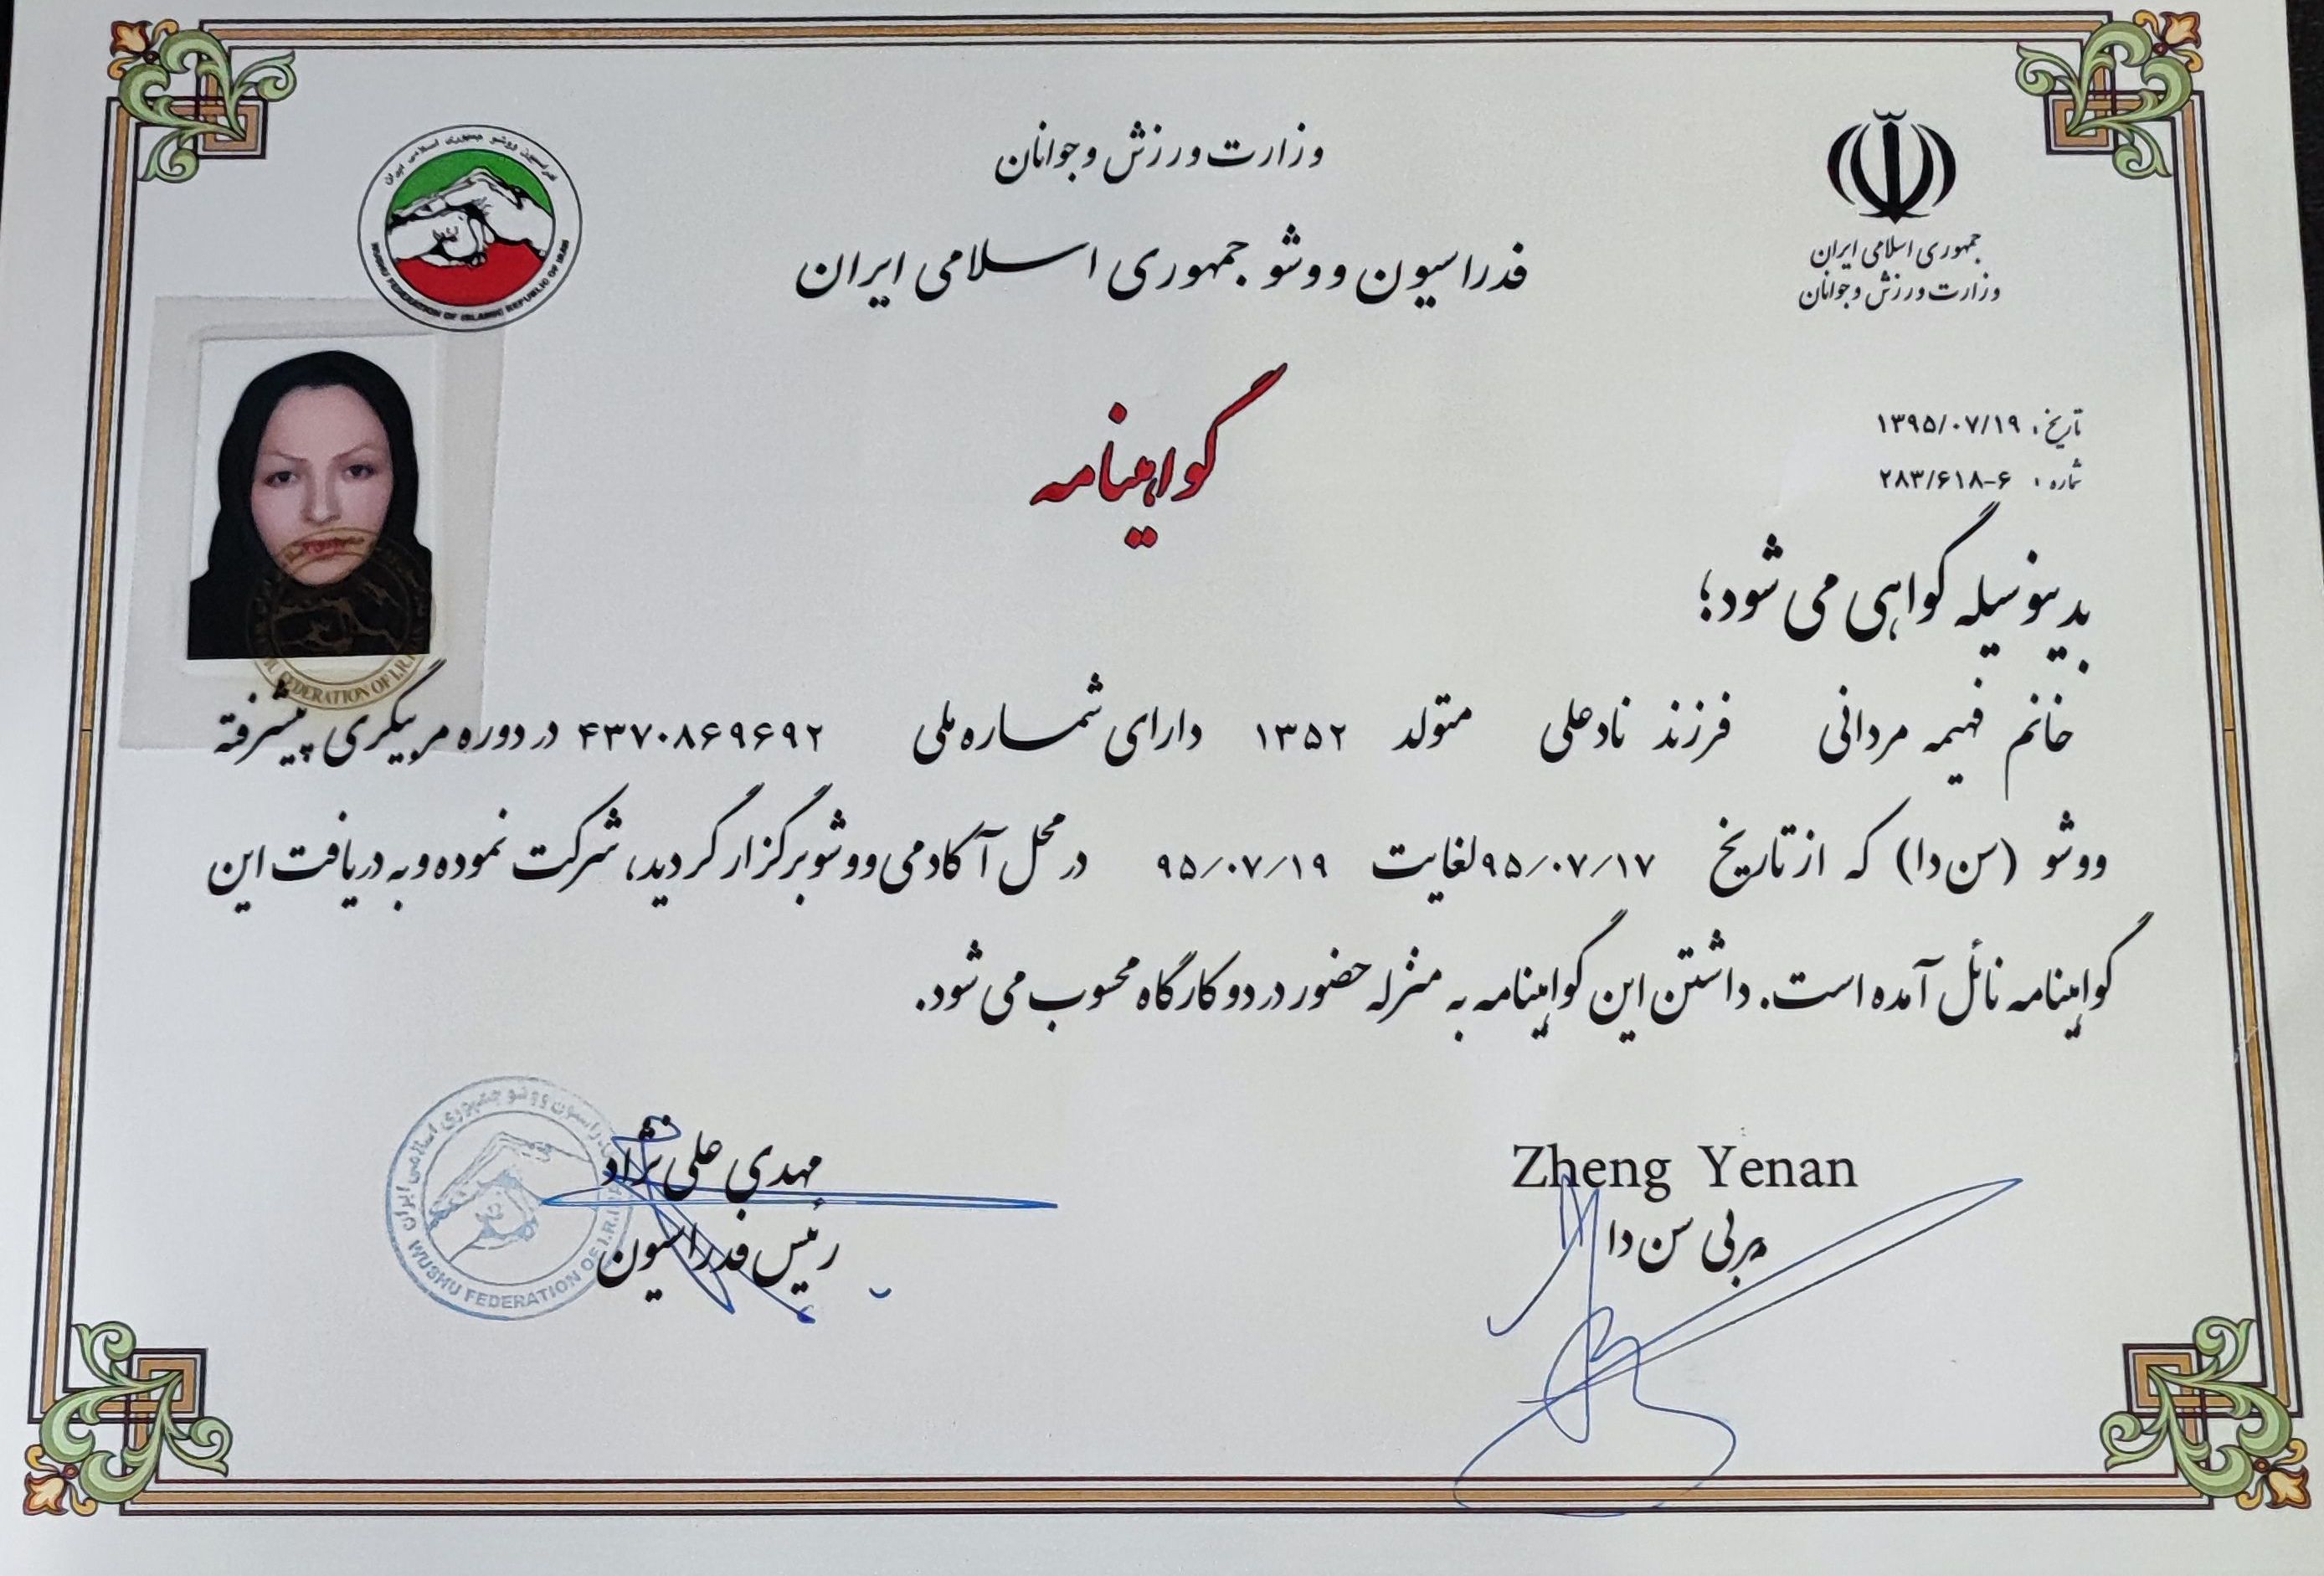 وزارت ورزش و جوانان
فدراسیون ووشو جمهوری اسلامی ایران
جمهوری اسلامی ایران
وزارت ورزش و جوانان
فدراسیون ووشو جمهوری اسلامی ایران
WUSHU FEDERATION OF ISLAMIC REPUBLIC OF IRAN
گواهینامه
تاریخ: ۱۳۹۵/۰۷/۱۹
شماره: ۲۸۳/۶۱۸-۶
بدینوسیله گواهی می شود؛
خانم فهیمه مردانی فرزند نادعلی متولد ۱۳۵۲ دارای شماره ملی ۴۳۷۰۸۶۹۶۹۲ در دوره مربیگری پیشرفته
ووشو (سن دا) که از تاریخ ۹۵/۰۷/۱۷ لغایت ۹۵/۰۷/۱۹ در محل آکادمی ووشو برگزار گردید، شرکت نموده و به دریافت این
گواهینامه نائل آمده است. داشتن این گواهینامه به منزله حضور در دو کارگاه محسوب می شود.
FEDERATION OF I.R.I
Zheng Yenan
مربی سن دا
مهدی علی نژاد
رئیس فدراسیون
فدراسیون ووشو جمهوری اسلامی ایران
WUSHU FEDERATION OF I.R.I